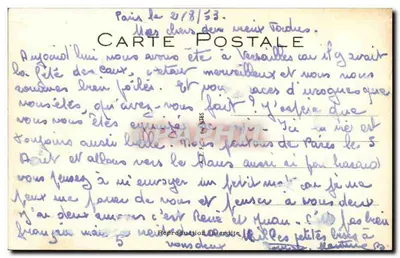 Paris le 2/8/53.
Mes chers deux vieux
CARTE POSTALE
Aujourd'hui nous avons été à Versailles car il y avait
la fête des eaux, c'était merveilleux et nous nous
sommes bien Et vous
que
vous êtes, qu'avez-vous fait ? J'espère que
vous vous êtes Ici la vie est
toujours aussi belle. Nous partons de Paris le 5
Août et allons vers le Mans aussi si par hasard
vous pensez à m'envoyer un petit mot car je ne
peux me passer de vous et penser à vous deux
J'ai deux amours c'est René et Juan. pas bien
français mais
Reproduction interdite
Mille petites bises à
vous deux